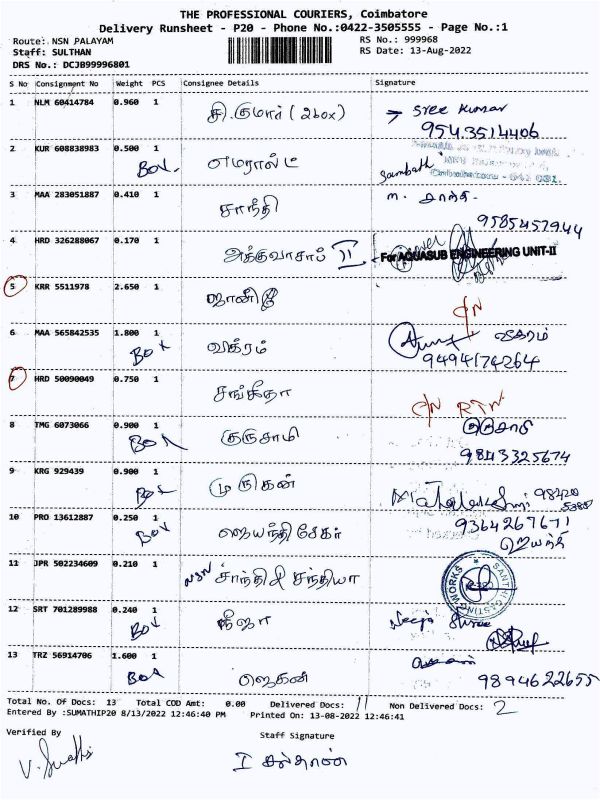 THE PROFESSIONAL COURIERS, Coimbatore
Delivery Runsheet - P20 - Phone No.:0422-3505555 - Page No.:1
Route: NSN PALAYAM
RS No.: 999968
Staff: SULTHAN
RS Date: 13-Aug-2022
DRS No.: DCJB99996801
S No Consignment No Weight PCS Consignee Details Signature
1 NLM 60414784 0.960 1 தி.குமார் (2box) → Sree Kumar
9543514406
2 KUR 608838983 0.500 1 Box எமரால்ட் Sambath
3 MAA 283051887 0.410 1 சாந்தி m. சாந்தி
9585457944
4 HRD 326288067 0.170 1 அக்குவாசப் II For AQUASUB ENGINEERING UNIT-II
5 KRR 5511978 2.650 1 C/N
6 MAA 565842535 1.800 1 Box விக்ரம் விக்ரம்
9494174264
7 HRD 50090049 0.750 1 சங்கீதா C/N RTN
8 TMG 6073066 0.900 1 Box குருசாமி
9843325674
9 KRG 929439 0.900 1 Box முருகன் Mahalakshmi 98420
10 PRO 13612887 0.250 1 Box ஜெயந்தி சேகர் 9364267671
ஜெயந்தி
11 JPR 502234609 0.210 1 NSN சாந்தி & சந்தியா SANTHI CASTING WORKS
12 SRT 701289988 0.240 1 Box நீஜா Neeja Shree
13 TRZ 56914706 1.600 1 Box ஜெகன்
9894622655
Total No. Of Docs: 13 Total COD Amt: 0.00 Delivered Docs: 11 Non Delivered Docs: 2
Entered By :SUMATHIP20 8/13/2022 12:46:40 PM Printed On: 13-08-2022 12:46:41
Verified By
Staff Signature
V. Sumathi
I சுல்தான்